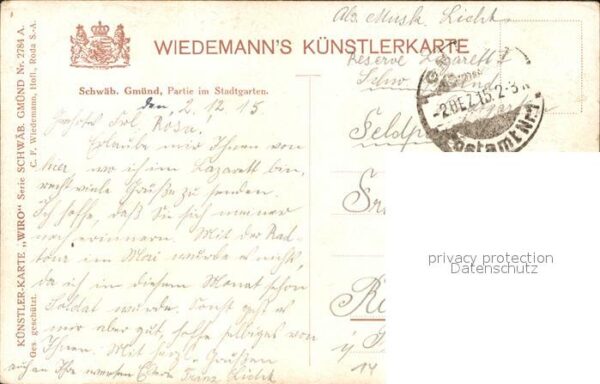 Abs. Musk. Licht.
WIEDEMANN'S KÜNSTLERKARTE
Reserve Lazarett I
Schw. Gmünd
Schwäb. Gmünd, Partie im Stadtgarten.
-2.DEZ.15.2-3N
Postamt Nr. 1
den, 2.12.15
Feldp
Geehrte Frl. Rosa,
Erlaube mir Ihnen von
hier, wo ich im Lazarett bin,
recht viele Grüße zu senden.
Ich hoffe, daß Sie sich meiner
noch erinnern. Mit der Rad-
tour im Mai wurde es nicht,
da ich in diesem Monat schon
Soldat wurde. Sonst geht es
mir aber gut, hoffe selbiges von
Ihnen. Mit herzl. Grüßen
auch an Ihre werten Eltern Franz Licht
14
KÜNSTLER-KARTE „WIRO" Serie SCHWÄB. GMÜND Nr. 2784 A.
Ges. geschützt. C. F. Wiedemann, Hofl., Roda S.-A.
privacy protection
Datenschutz